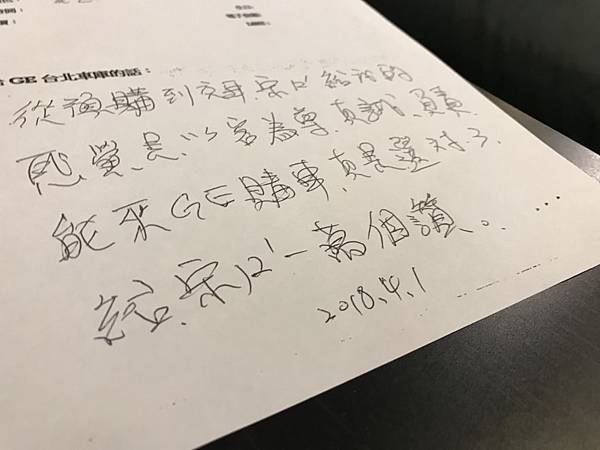 GE 台北車庫的話：
從預購到交車,宗 給我的
感覺是,以客為尊,真誠,負責
能來GE購車,真是選对了.
給宗 一萬個讚。。...
2018.4.1